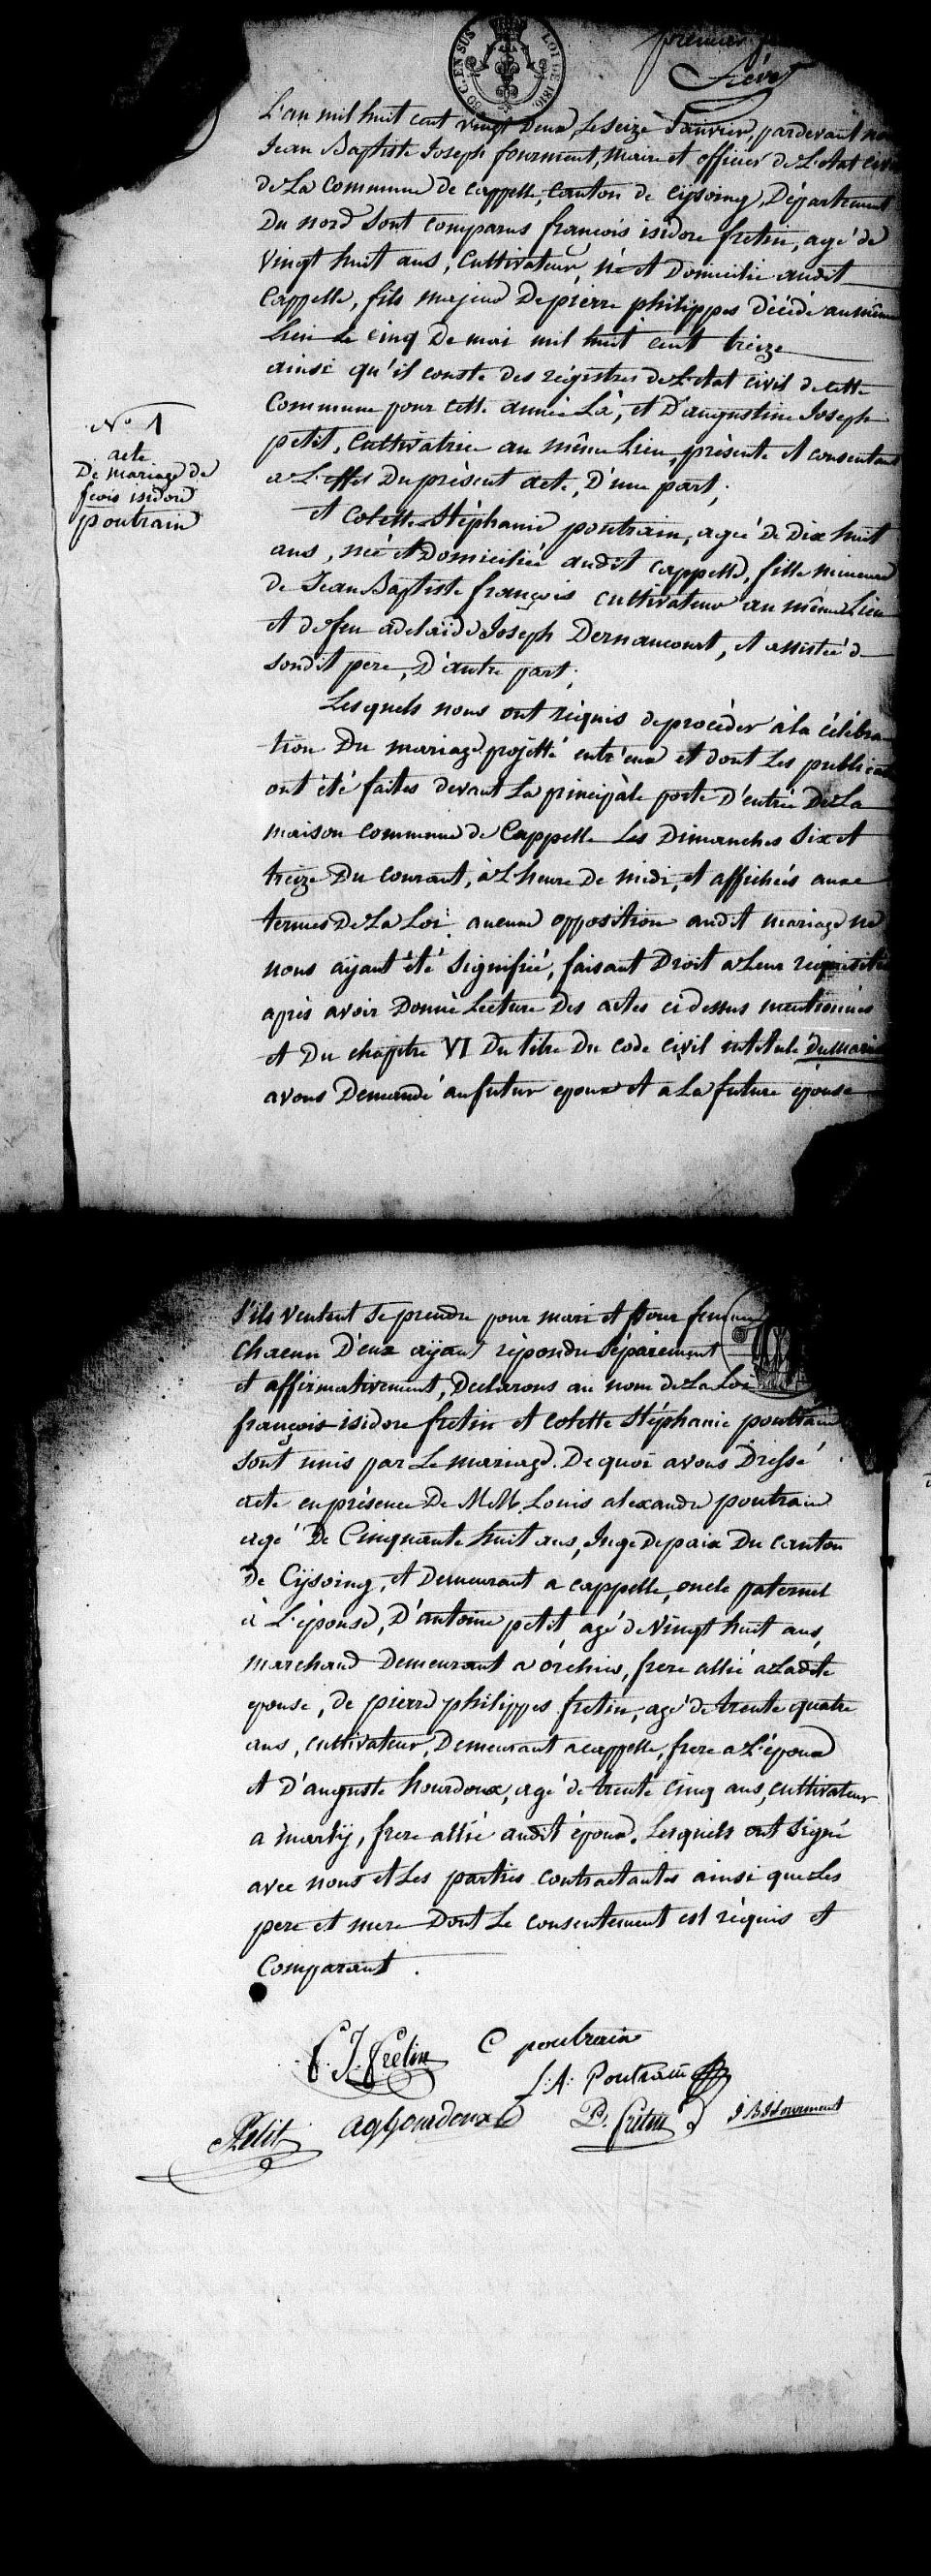 50 C. EN SUS
LOI DE 1816
premier
L'an mil huit cent vingt deux, Le seize Janvier, pardevant
Jean Baptiste Joseph fourment, maire et officier de L'etat
de La Commune de cappelle, canton de cijsoing, Département
Du nord sont comparus françois isidore fretin, agé de
vingt huit ans, cultivateur, né et Domicilié audit
Cappelle, fils majeur De pierre philippes décédé au même
lieu le cinq De mai mil huit cent treize
ainsi qu'il conste des régistres de L'etat civil de cette
commune pour cette année Là, et D'augustine Joseph
petit, cultivatrice au même Lieu, présente et consentant
a L'effet Du présent acte, D'une part;
N° 1
acte
De mariage de
fcois isidore
poutrain
et colette Stéphanie poutrain, agée de Dix huit
ans, née et Domiciliée audit cappelle, fille mineure
de Jean Baptiste françois cultivateur au même Lieu
et de feu adelaïde Joseph Dernaucourt, et assistée d
sondit pere, D'autre part;
Lesquels nous ont réquis de procéder à la célébra
tion Du mariage projetté entr'eux et dont Les
ont été faites devant La principale porte D'entrée De La
maison commune de Cappelle Les Dimanches Six et
treize Du courant, à L'heure De midi, et affichés aux
termes De La Loi. aucune opposition audit mariage ne
nous aÿant été signifiée, faisant Droit a Leur
après avoir Donné Lecture Des actes ci dessus mentionnés
et Du chapitre VI Du titre Du code civil intitulé du
avons Demandé au futur epoux et a La future épouse
s'ils veulent se prendre pour mari et pour femme
chacun D'eux aÿant répondu séparement
et affirmativement, Declarons au nom de La Loi
françois isidore fretin et colette Stéphanie poutrain
sont unis par Le mariage. De quoi avons Dressé
acte en présence De MM Louis alexandre poutrain
agé De Cinquante huit ans, Juge De paix Du canton
de Cijsoing, et Demeurant a cappelle, oncle paternel
à L'épouse, D'antoine petit, agé de Vingt huit ans,
marchand Demeurant a orchies, frere allié a Ladite
epouse, de pierre philippes fretin, agé de trente quatre
ans, cultivateur, Demeurant a cappelle, frere a L'époux
et D'auguste hourdoux, agé de trente cinq ans, cultivateur
a marly, frere allié audit époux. Lesquels ont signé
avec nous et Les parties contractantes ainsi que Les
pere et mere Dont Le consentement est réquis et
Comparant.
f. J. fretin
C poutrain
L: A: Poutrain
Petit
ag hourdoux
P. fretin
J B J fourment